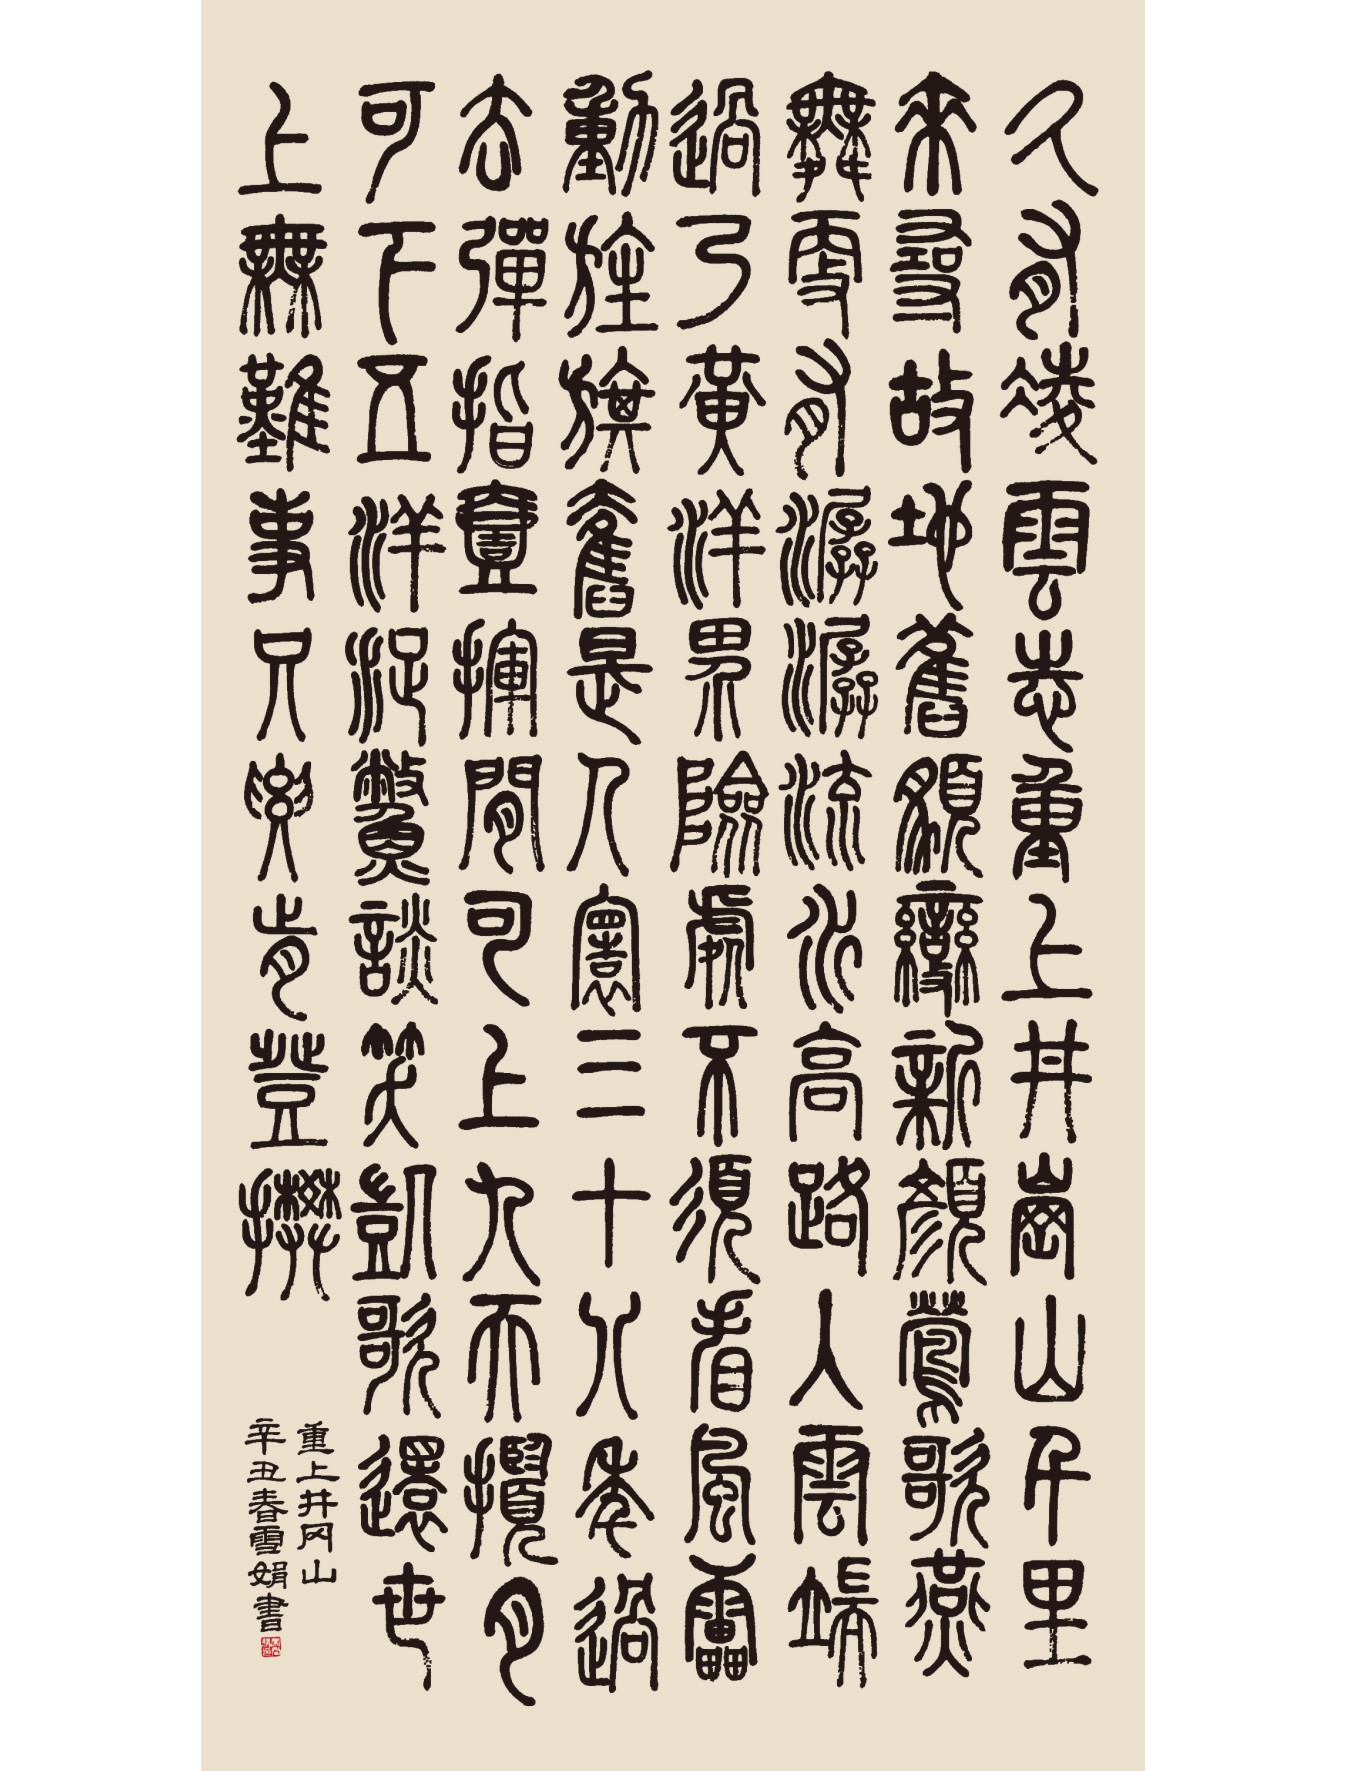 久有凌雲志重上井岡山千里
來尋故地舊貌變新顏鶯歌燕
舞更有潺潺流水高路入雲端
過了黃洋界險處不須看風雷
動旌旗奮是人寰三十八年過
去彈指壹揮間可上九天攬月
可下五洋捉鱉談笑凱歌還世
上無難事只要肯登攀
重上井冈山
辛丑春雪娟書